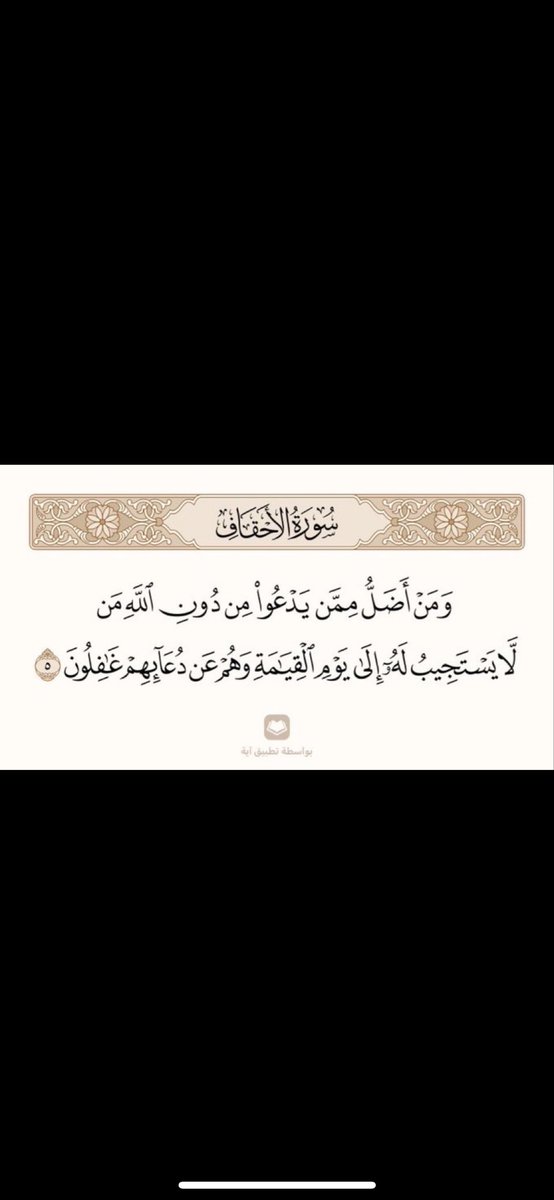 سُورَةُ الأَحْقَافِ
وَمَنْ أَضَلُّ مِمَّن يَدْعُوا۟ مِن دُونِ ٱللَّهِ مَن
لَّا يَسْتَجِيبُ لَهُۥٓ إِلَىٰ يَوْمِ ٱلْقِيَـٰمَةِ وَهُمْ عَن دُعَآئِهِمْ غَـٰفِلُونَ ٥
بواسطة تطبيق آية